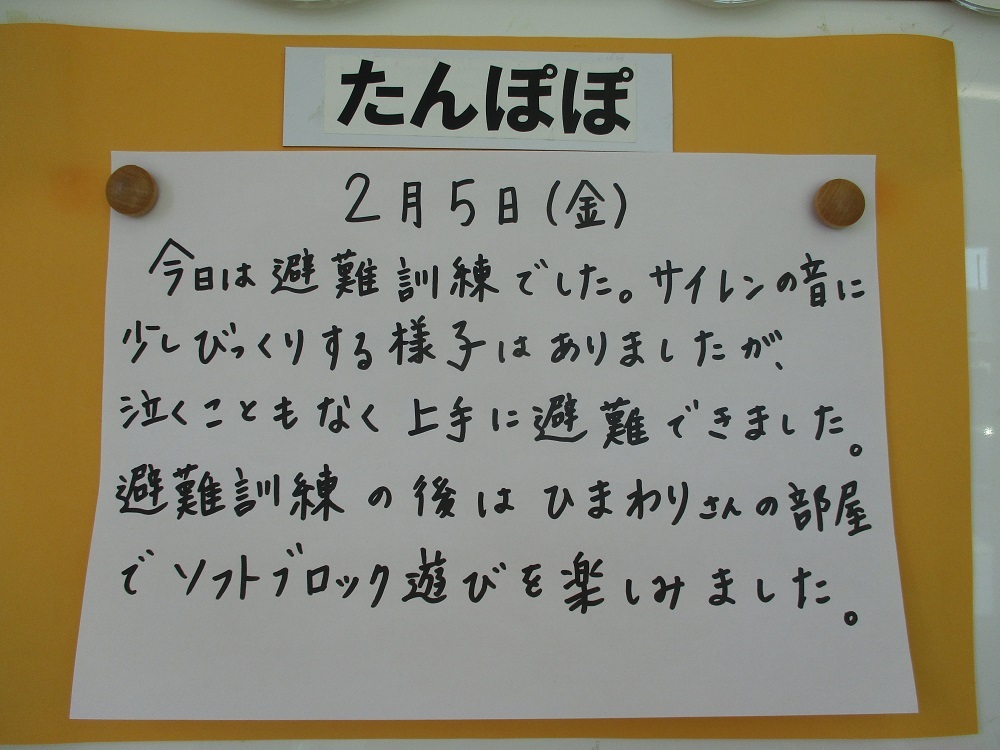 たんぽぽ
2月5日(金)
今日は避難訓練でした。サイレンの音に
少しびっくりする様子はありましたが、
泣くこともなく上手に避難できました。
避難訓練の後はひまわりさんの部屋
でソフトブロック遊びを楽しみました。